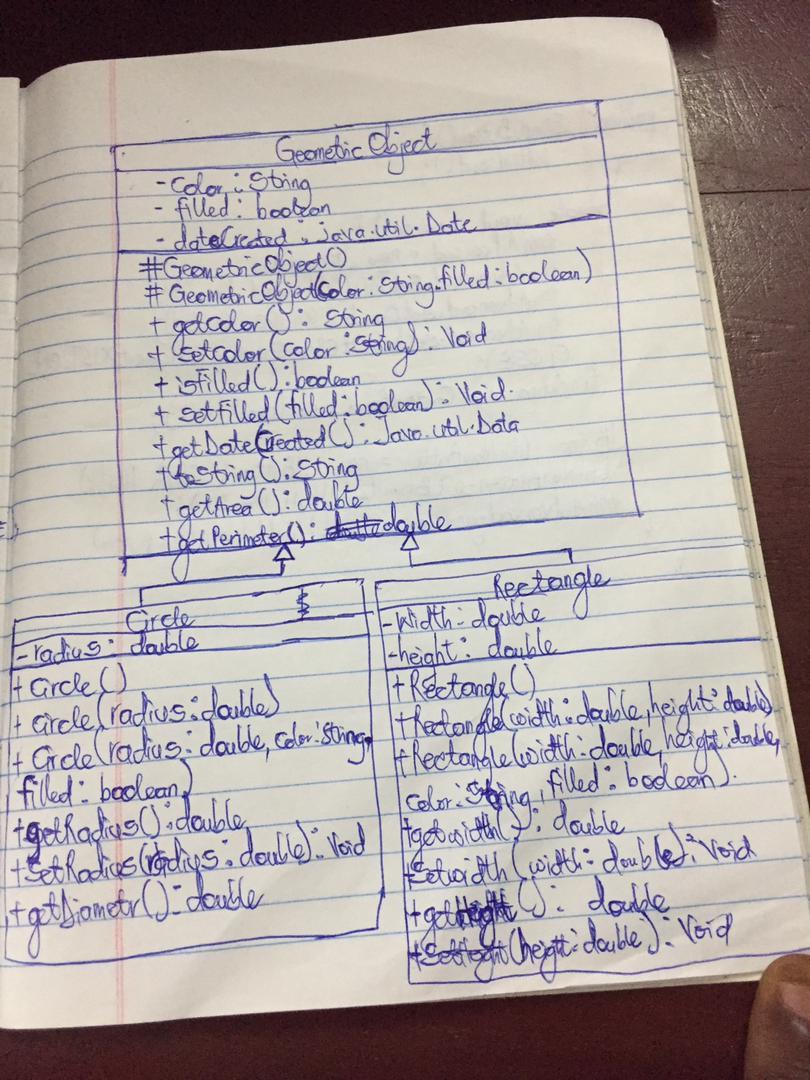 Geometric Object
- Color : String
- filled : boolean
- dateCreated : java.util.Date
#GeometricObject()
# GeometricObject(Color : String, filled : boolean)
+ getcolor() : String
+ setcolor(color : String) : Void
+ isfilled() : boolean
+ setfilled(filled : boolean) : Void.
+ getDateCreated() : Java.util.Data
+ toString() : String
+ getArea() : double
+ getPerimeter() : double
Circle
- radius : double
+ Circle()
+ Circle(radius : double)
+ Circle(radius : double, Color : String,
filled : boolean)
+getRadius() : double
+SetRadius(radius : double) : Void
+getDiametr() : double
Rectangle
-Width : double
-height : double
+Rectangle()
+Rectangle(width : double, height : double)
+Rectangle(width : double, height : double,
Color : String, filled : boolean).
+getwidth() : double
+Setwidth(width : double) : Void
+getHeight() : double
(height : double) : Void